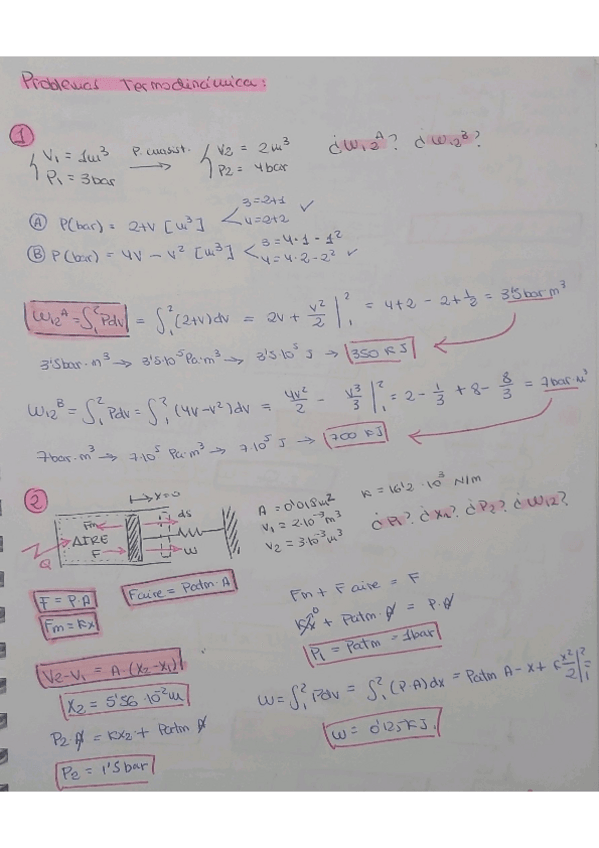 Problemas Termodinámica:
1
V₁ = 1m³ P. const. V₂ = 2m³ ¿W₁₂ᴬ? ¿W₁₂ᴮ?
P₁ = 3bar → P₂ = 4bar
Ⓐ P(bar) = 2+V [m³] 3=2+1 4=2+2 ✓
Ⓑ P(bar) = 4V - V² [m³] 3=4·1-1² 4=4·2-2² ✓
W₁₂ᴬ = ∫₁² Pdv = ∫₁² (2+v)dv = 2v + v²/2 |₁² = 4+2-2+1/2 = 3'5bar m³
3'5bar·m³ → 3'5·10⁵ Pa·m³ → 3'5·10⁵ J → 350 KJ
W₁₂ᴮ = ∫₁² Pdv = ∫₁² (4v-v²)dv = 4v²/2 - v³/3 |₁² = 2 - 1/3 + 8 - 8/3 = 7bar·m³
7bar·m³ → 7·10⁵ Pa·m³ → 7·10⁵ J → 700 KJ
2
x=0
Fm ds
AIRE
F W
Q
A = 0'018m² K = 16'2·10³ N/m
V₁ = 2·10⁻³m³
V₂ = 3·10⁻³m³
¿P₁? ¿X₂? ¿P₂? ¿W₁₂?
F = P·A Faire = Patm·A
Fm = Kx
Fm + Faire = F
Kx⁰ + Patm·A = P·A
P₁ = Patm = 1bar
V₂-V₁ = A·(X₂-X₁)
X₂ = 5'56·10⁻²m
W = ∫₁² Pdv = ∫₁² (P·A)dx = Patm A-x + K x²/2 |₁² =
P₂·A = KX₂ + Patm A
W = 0'125KJ
P₂ = 1'5bar